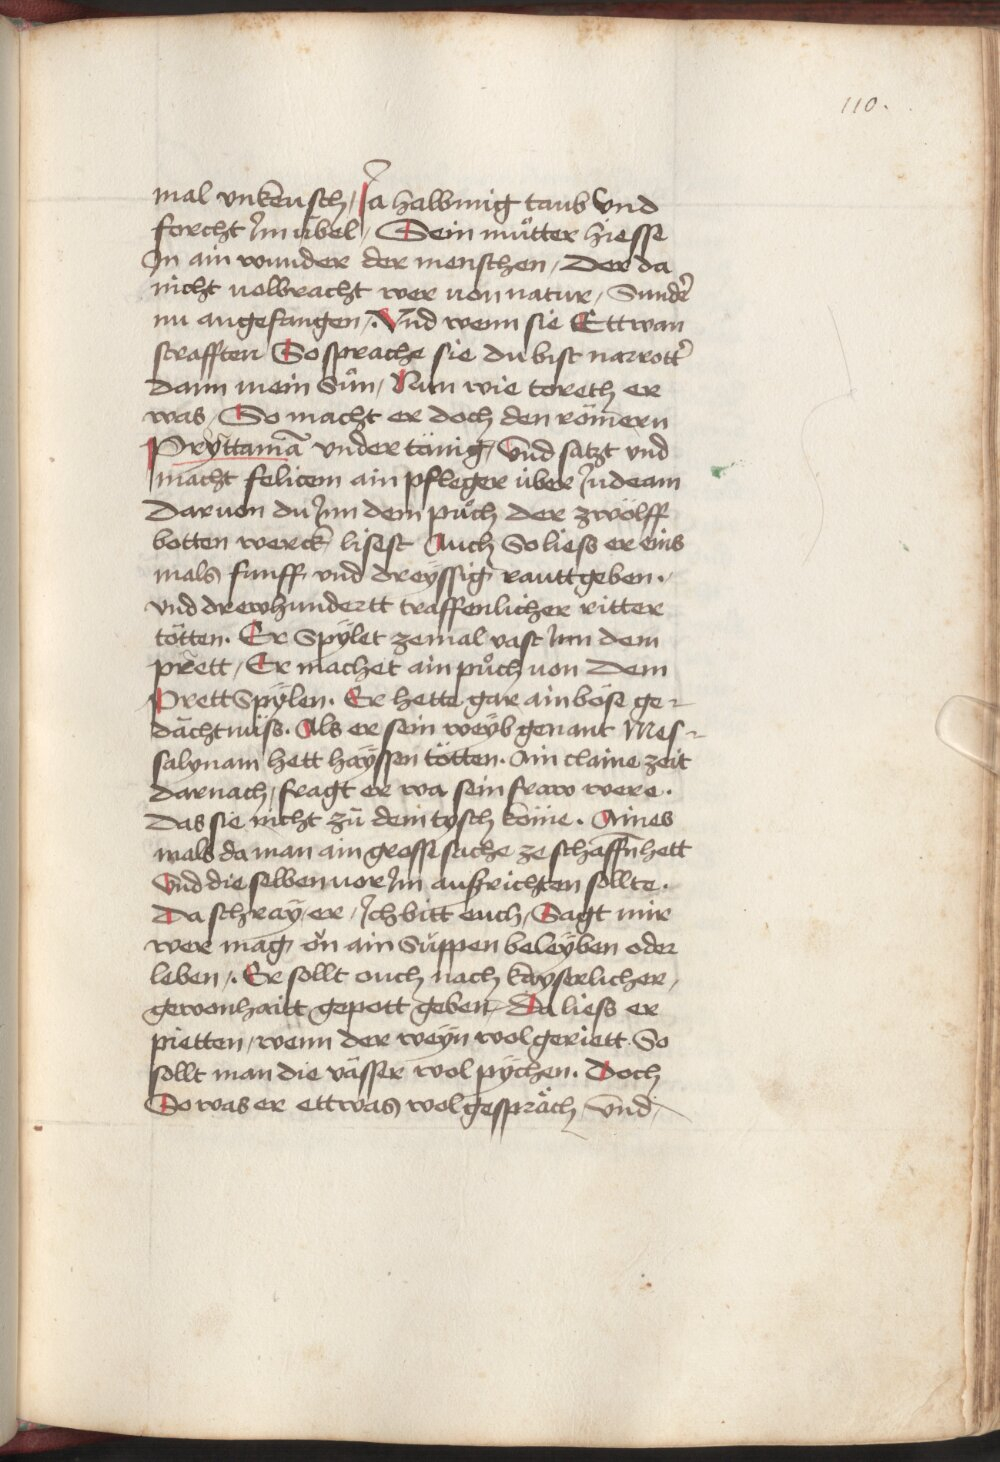 110.
mal vnkeusch / Ja halbwnig taub Vnd
forcht Im übel / Sein můtter hiesse
In ain wunder der menschen / Der da
nicht uolbracht wer uon natur / Sunder̄
nu angefangen /. Vnd wenn sie Ettwan
strafften So sprache sie du bist narrott'
dann mein Sůn / Nun wie toreth er
was / So macht er doch den römern
Pryttaniā vndertänig / Vnd satzt vnd
macht felicem ain pfleger über Judeam
Daruon du Inn dem půch der zwölff
botten werck lisest Auch So liess er eins
mals funff vnd dreÿssig rauttgeben.
vnd drewhundertt traffenlicher ritter
tötten. Er Spÿlet zemal vast Inn dem
prett / Er machet ain půch von Dem
Prett Spÿlen. Er hette gar ain böse ge-
dächtnüss. Als er sein weÿb genant Mes-
salynam hett haÿssen tötten. Ain claine zeit
darnach / fragt er wa sein fraw were.
Das sie nicht zů dem tyschköme. Aines
mals da man ain grosse sache ze schaffn̄ hett
Vnd die selben uor Im aufzrichten sollte.
Da schraÿ er / Ich bitt euch / Sagt mir
wer mag on ain Suppen beleÿben oder
leben /. Er sollt ouch nach kayserlicher
gewonhaitt gepott geben / Da liess er
pietten / wenn der weÿn wol geriett. So
sollt man die vässer wol pÿchen. Doch
So was er ettwas wol gespräch vnd